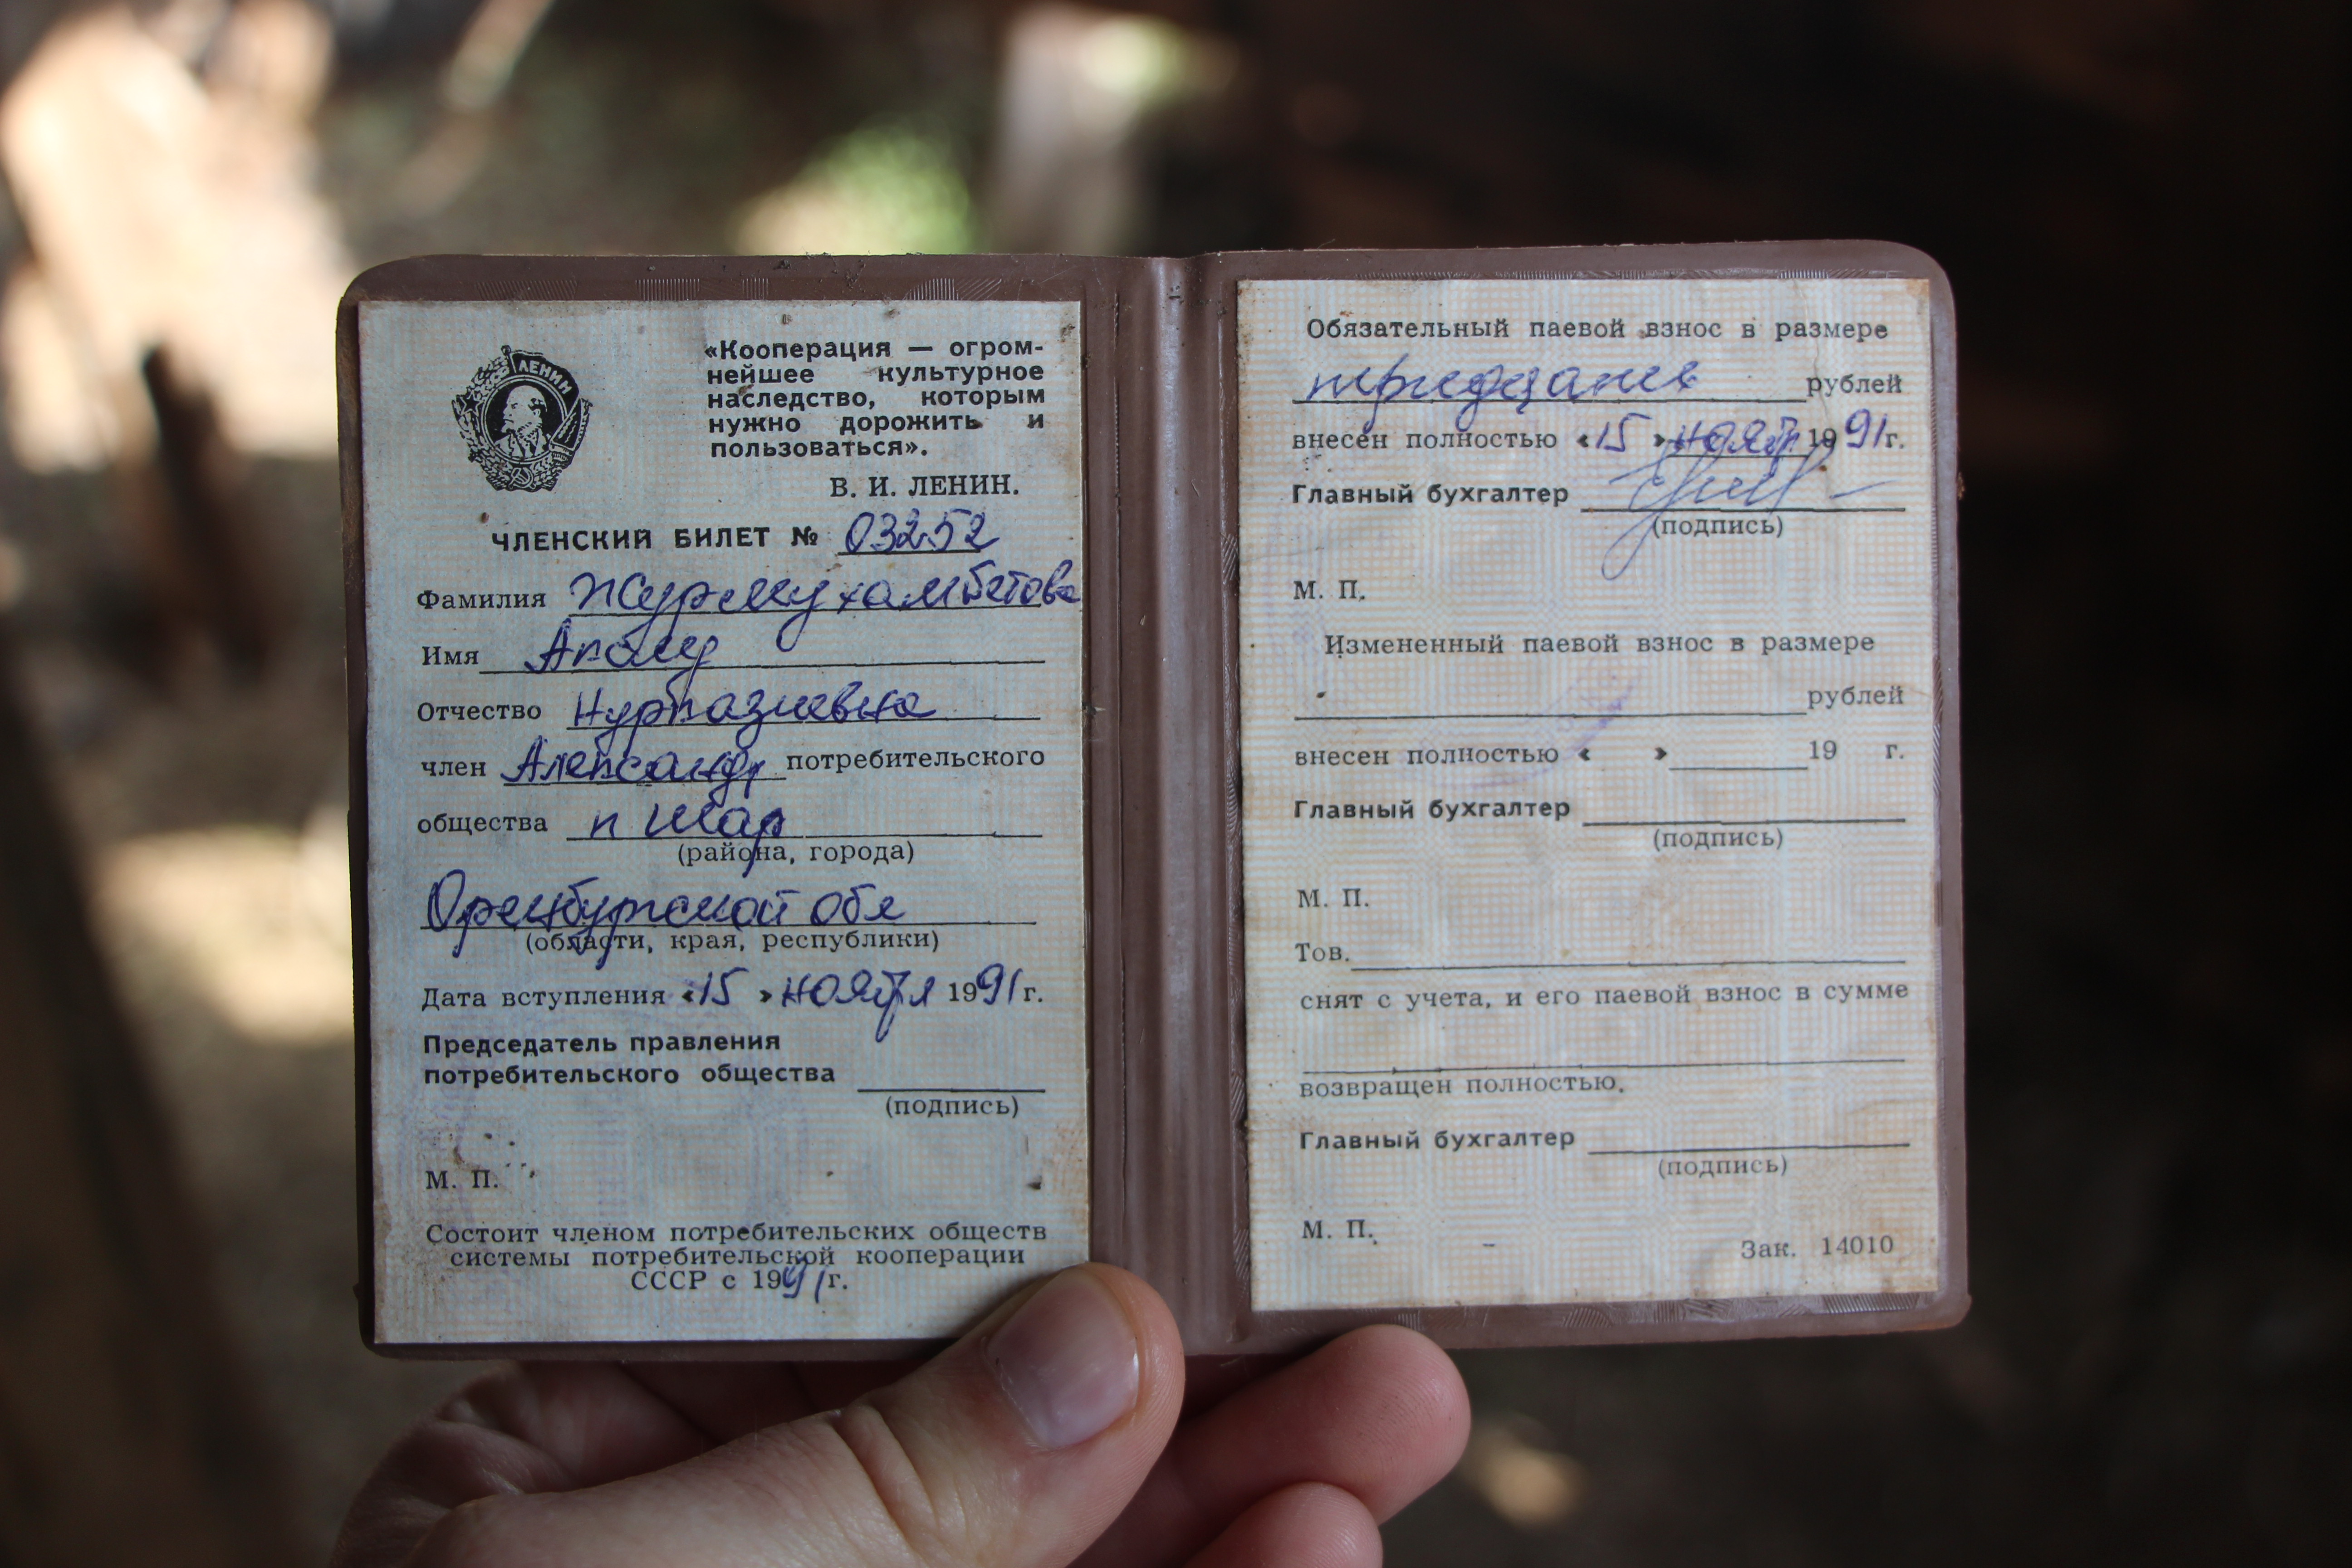 ЛЕНИН
«Кооперация — огром-
нейшее культурное
наследство, которым
нужно дорожить и
пользоваться».
В. И. ЛЕНИН.
ЧЛЕНСКИЙ БИЛЕТ № 03252
Фамилия Журмухамбетова
Имя
Отчество
член Александр потребительского
общества п Шар
(района, города)
Оренбургской обл
(области, края, республики)
Дата вступления «15» ноября 1991 г.
Председатель правления
потребительского общества
(подпись)
М. П.
Состоит членом потребительских обществ
системы потребительской кооперации
СССР с 1991 г.
Обязательный паевой взнос в размере
рублей
внесен полностью «15» нояб 1991 г.
Главный бухгалтер
(подпись)
М. П.
Измененный паевой взнос в размере
рублей
внесен полностью « » 19 г.
Главный бухгалтер
(подпись)
М. П.
Тов.
снят с учета, и его паевой взнос в сумме
возвращен полностью.
Главный бухгалтер
(подпись)
М. П.
Зак. 14010